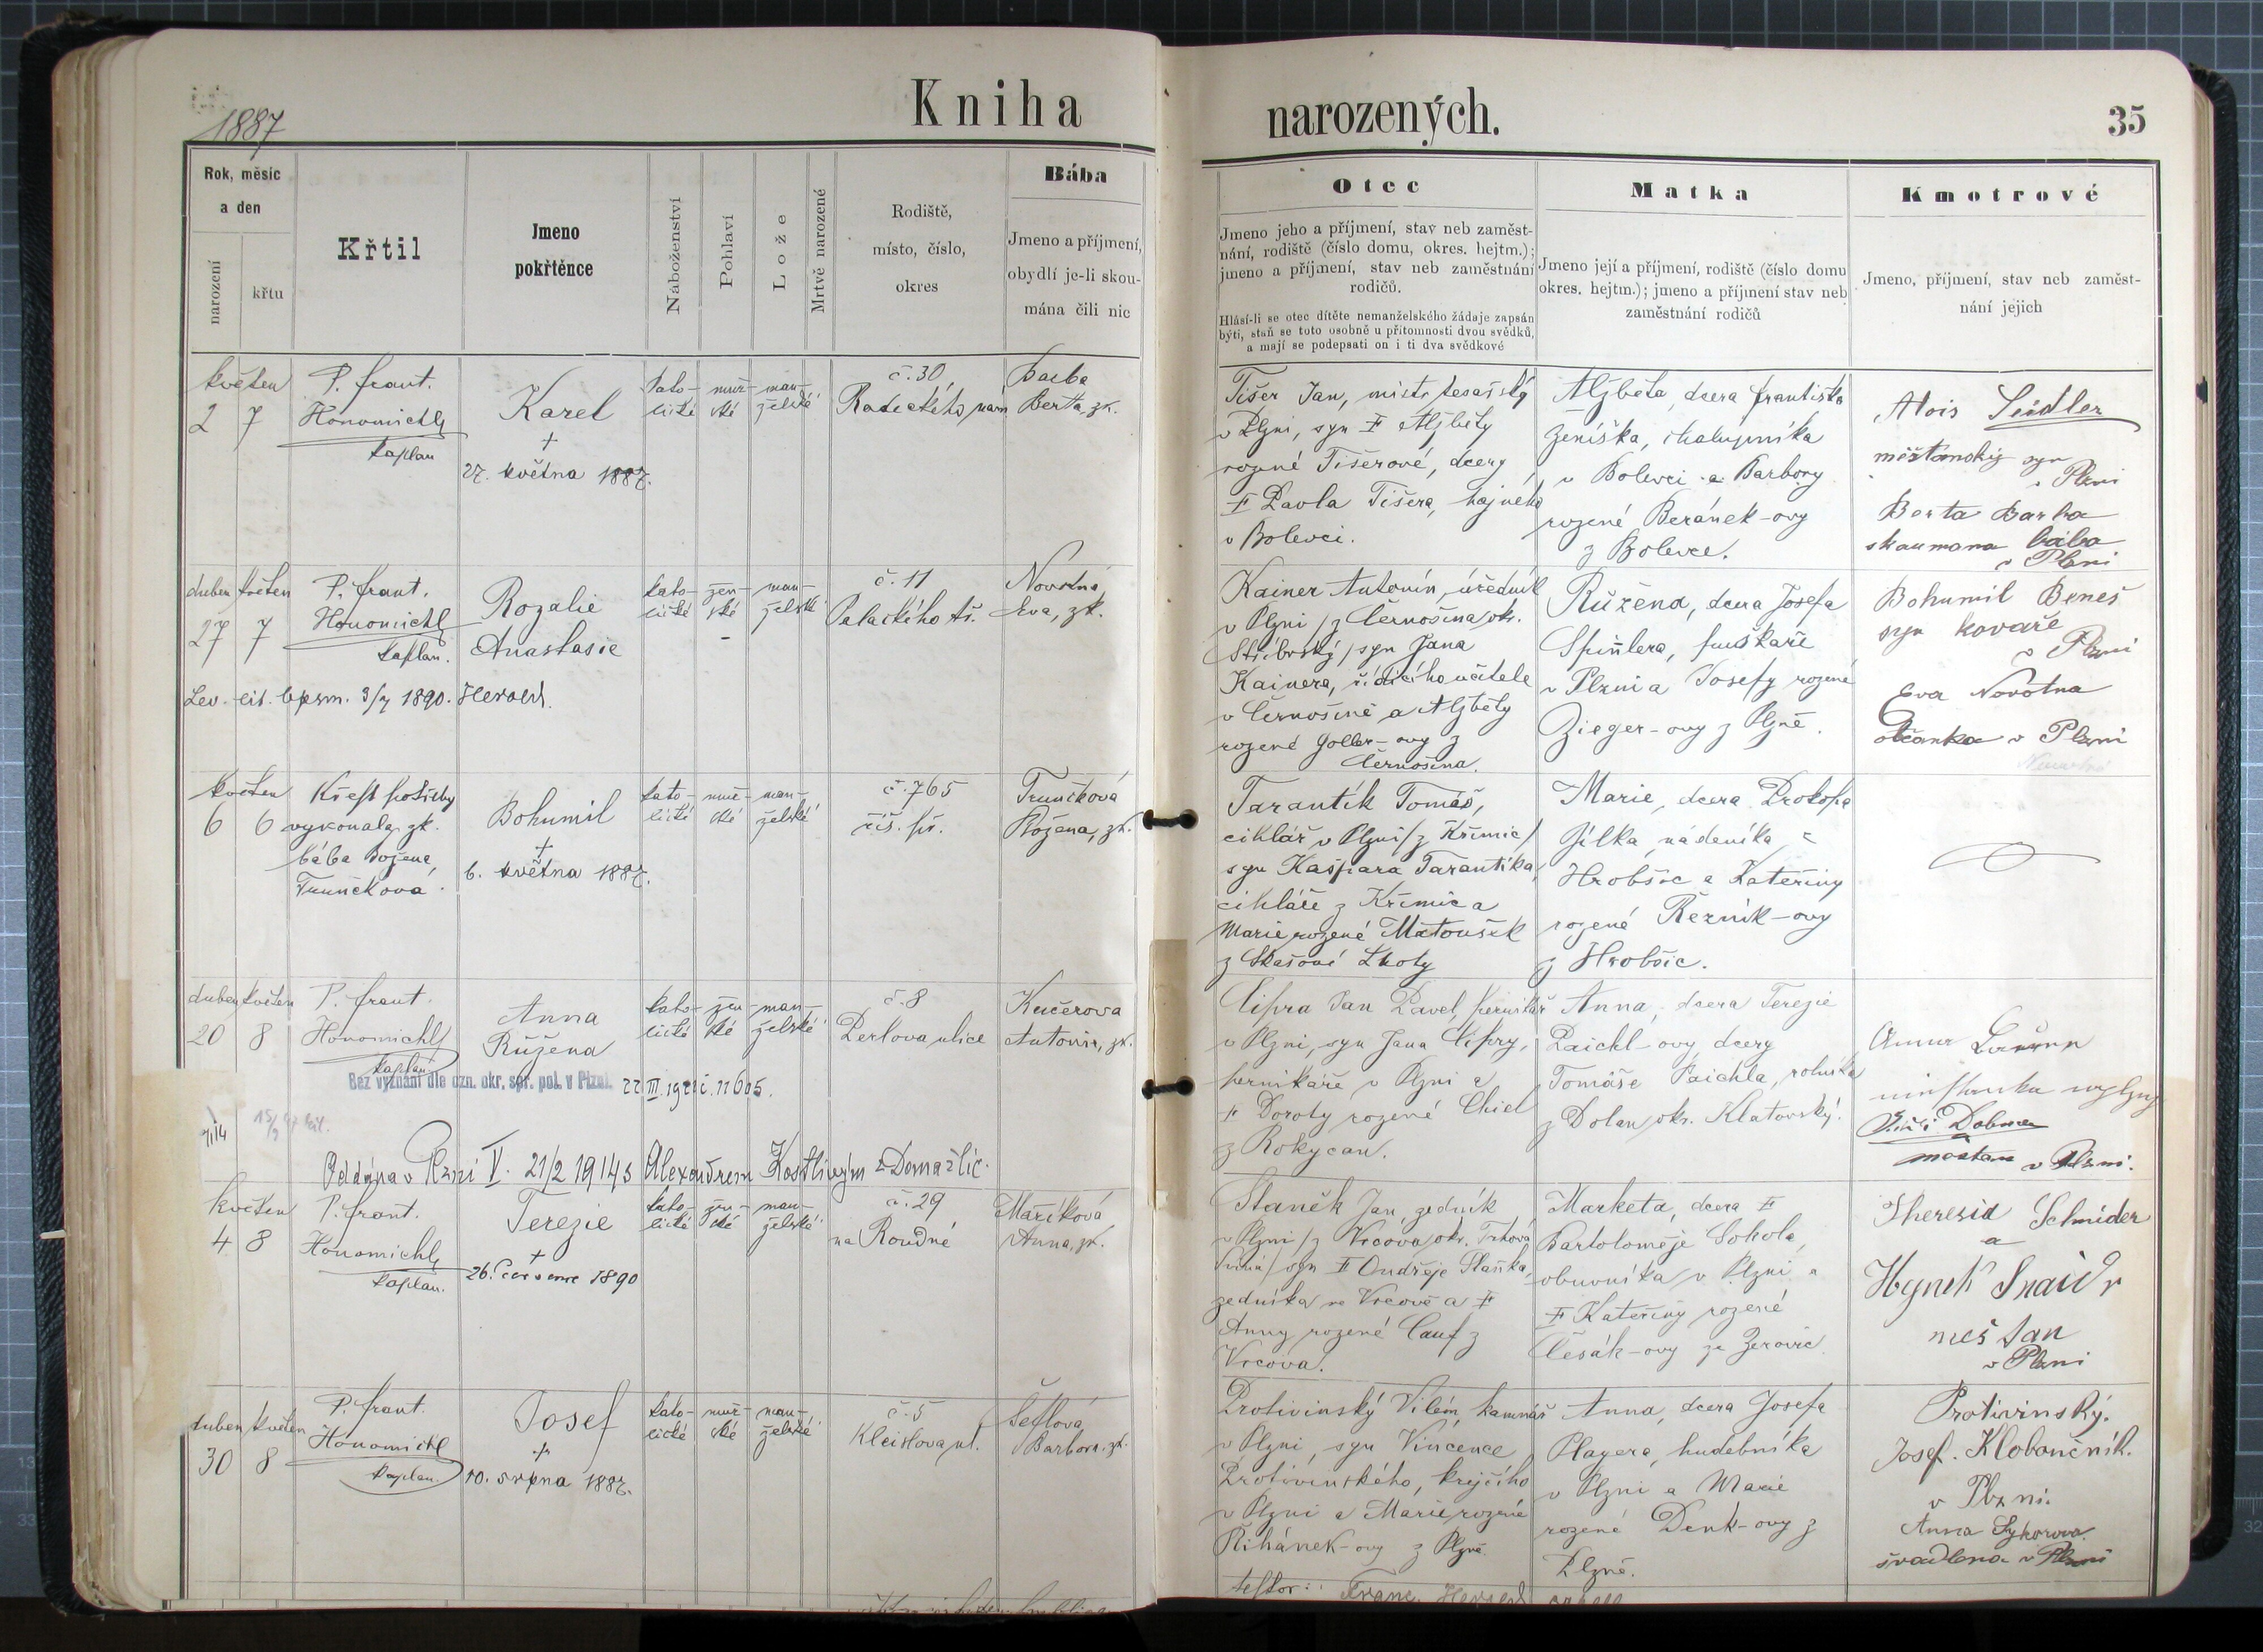 1887
Kniha
narozených.
35
Rok, měsíc
a den
narození
křtu
Křtil
Jmeno
pokřtěnce
Náboženství
Pohlaví
Lože
Mrtvě narozené
Rodiště,
místo, číslo,
okres
Bába
Jmeno a příjmení,
obydlí je-li skou-
mána čili nic
Otec
Jmeno jeho a příjmení, stav neb zaměst-
nání, rodiště (číslo domu, okres. hejtm.);
jmeno a příjmení, stav neb zaměstnání
rodičů.
Hlásí-li se otec dítěte nemanželského žádaje zapsán
býti, staň se toto osobně u přítomnosti dvou svědků,
a mají se podepsati on i ti dva svědkové
Matka
Jmeno její a příjmení, rodiště (číslo domu
okres. hejtm.); jmeno a příjmení stav neb
zaměstnání rodičů
Kmotrové
Jmeno, příjmení, stav neb zaměst-
nání jejich
květen
2 7
P. Frant.
Honomichl
kaplan
Karel
†
27. května 1887.
kato-
lické
muž-
ské
man-
želské
č. 30
Radeckého nám
Barba
Berta, zk.
Tišer Jan, mistr tesařský
v Plzni, syn † Alžběty
rozené Tišerové, dcery
† Pavla Tišera, hajného
v Bolevci.
Alžběta, dcera Františka
Ženíška, chalupníka
v Bolevci a Barbory
rozené Beránek-ovy
z Bolevce.
Alois Seidler
měštanský syn
v Plzni
Berta Barba
skaumana bába
v Plzni
duben květen
27 7
P. Frant.
Honomichl
kaplan.
Rozalie
Anastasie
kato-
lické
žen-
ské
man-
želské
č. 11
Palackého tř.
Novotná
Eva, zk.
Lev. cit. bpsm. 3/7 1890. Herold.
Kainer Antonín, úředník
v Plzni /z Černošína okr.
Stříbrský/ syn Jana
Kainera, řídícího učitele
v Černošíně a Alžběty
rozené Goller-ovy z
Černošína.
Růžena, dcera Josefa
Špinlera, puškaře
v Plzni a Josefy rozené
Zieger-ovy z Plzně.
Bohumil Beneš
syn kovaře
v Plzni
Eva Novotna
občanka v Plzni
květen
6 6
Křest potřeby
vykonala zk.
bába Božena
Trunčková.
Bohumil
†
6. května 1887.
kato-
lické
muž-
ské
man-
želské
č. 765
říš. př.
Trunčková
Božena, zk.
Tarantík Tomáš,
cihlář v Plzni /z Křimic/
syn Kašpara Tarantíka,
cihláře z Křimic a
Marie rozené Matoušek
z Lhoty
Marie, dcera Prokopa
Jílka, nádeníka z
Hrobšic a Kateřiny
rozené Řezník-ovy
z Hrobšic.
duben květen
20 8
P. Frant.
Honomichl
kaplan
Anna
Růžena
kato-
lické
žen-
ské
man-
želské
č. 8
Perlova ulice
Kučerova
Antonie, zk.
Bez vyznání dle ozn. okr. spr. pol. v Plzni. 22 III. 1921 č. 11605.
Oddána v Plzni V. 21/2 1914 s Alexandrem Kostlivým z Domažlic.
Cipra Jan Pavel, perníkář
v Plzni, syn Jana Cipry,
perníkáře v Plzni a
† Doroty rozené Chiel
z Rokycan.
Anna, dcera Terezie
Paichl-ovy dcery
Tomáše Paichla, rolníka
z Dolan okr. Klatovský.
Dobner
měštan v Plzni.
květen
4 8
P. Frant.
Honomichl
kaplan.
Terezie
†
26. července 1890
kato-
lické
žen-
ské
man-
želské
č. 29
na Roudné
Maříková
Anna, zk.
Staněk Jan, zedník
v Plzni /z Vrcova okr. Trhová
Svina/ syn † Ondřeje Staňka,
zedníka ve Vrcově a †
Anny rozené Cauf z
Vrcova.
Marketa, dcera †
Bartoloměje Sokola,
obuvníka v Plzni a
† Kateřiny rozené
Česák-ovy ze Žerovic.
Theresia Schnider
a
Hynek Snaidr
mešťan
v Plzni
duben květen
30 8
P. Frant.
Honomichl
kaplan.
Josef
†
10. srpna 1887.
kato-
lické
muž-
ské
man-
želské
č. 5
Kleislova ul.
Šeflová
Barbora, zk.
Protivinský Vilém, kamnář
v Plzni, syn Vincence
Protivinského, krejčího
v Plzni a Marie rozené
Řihánek-ovy z Plzně.
Anna, dcera Josefa
Playera, hudebníka
v Plzni a Marie
rozené Denk-ovy z
Plzně.
Protivinský.
Josef. Klobaučník.
v Plzni.
Anna Sykorova
švadlena v Plzni